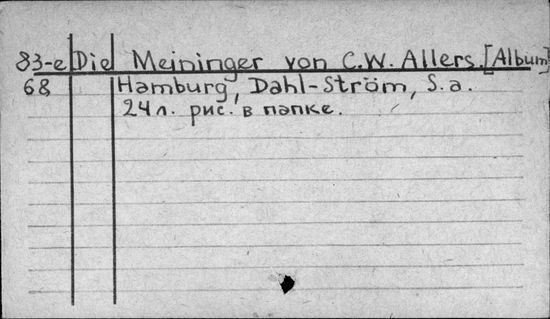 83-е Die Meininger von C.W. Allers. [Album]
68 Hamburg, Dahl-Ström, S.a.
24 л. рис. в папке.